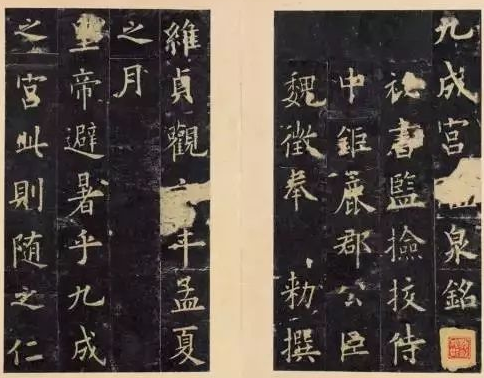 九成宮泉銘
秘書監撿挍侍
中鉅鹿郡公臣
魏徵奉 勑撰
維貞觀六年孟夏
之月
皇帝避暑乎九成
之宮此則随之仁